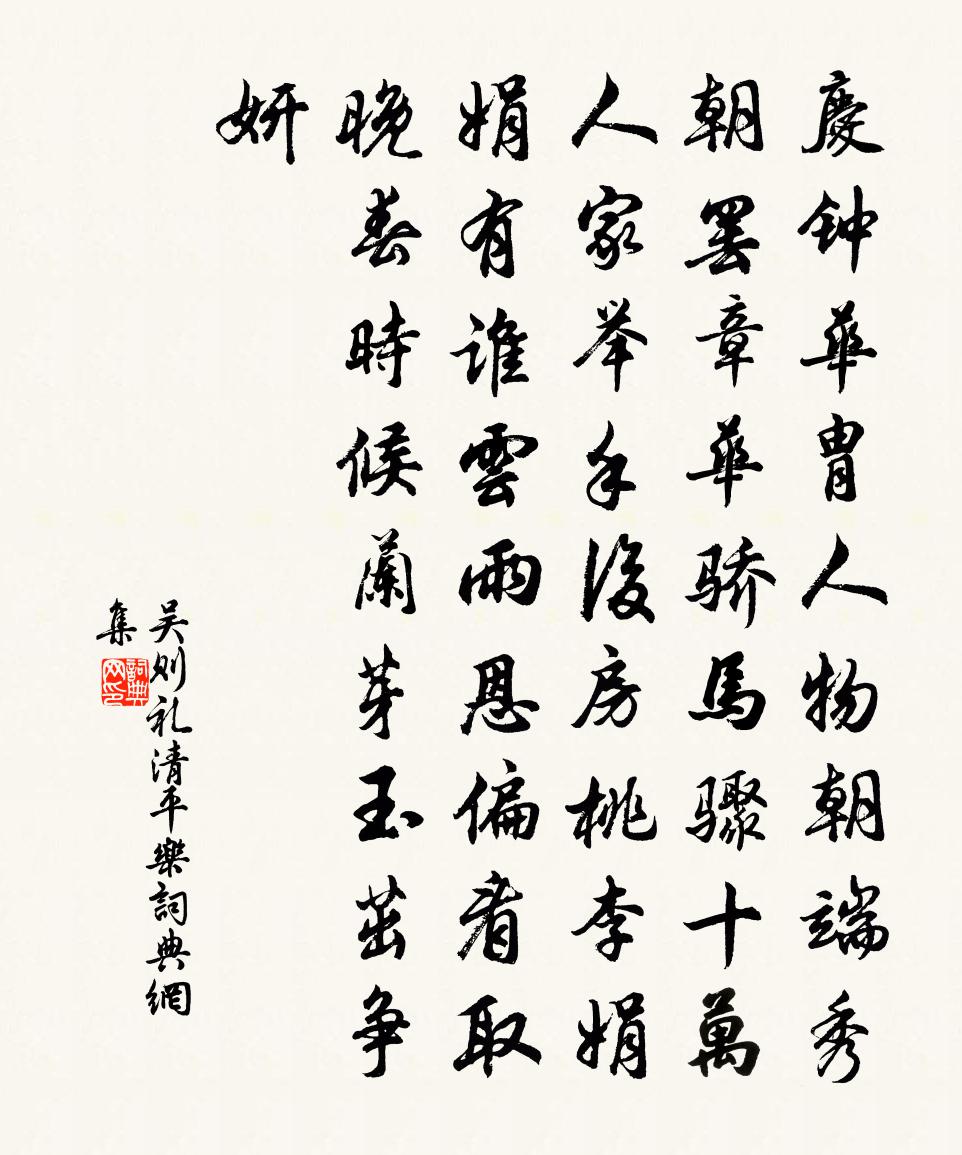 慶钟華胄人物朝端秀
朝罢章華骄馬骤十萬
人家举手後房桃李娟
娟有谁雲雨恩偏看取
晚春時候蘭芽玉茁争
妍
吴则礼清平樂詞典網
集
詞典
网印